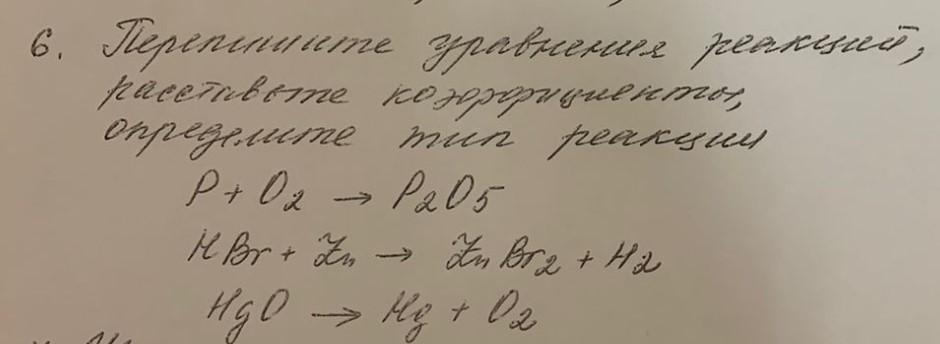 6. Перепишите уравнения реакций,
расставьте коэффициенты,
определите тип реакции
P + O₂ → P₂O₅
HBr + Zn → ZnBr₂ + H₂
HgO → Hg + O₂